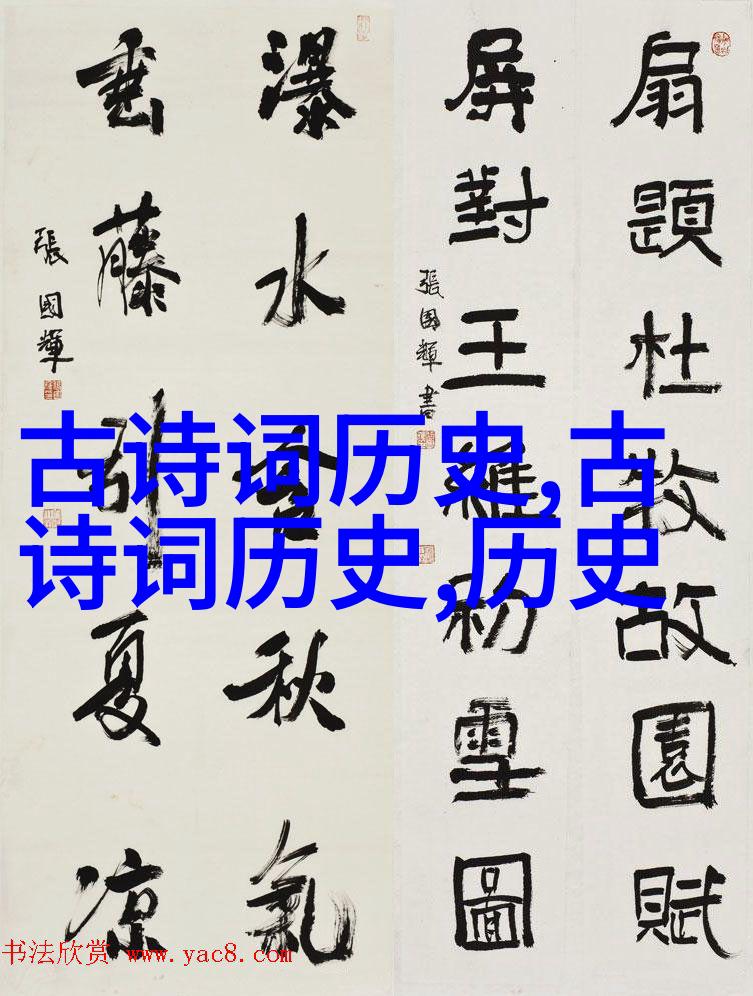 扇題杜牧故園賦
屏對王維初雪圖
張國輝書
瀑水含秋氣
垂藤引夏凉
張國輝
古诗词历史,古
诗词历史,历史
书法欣赏 www.yac8.com